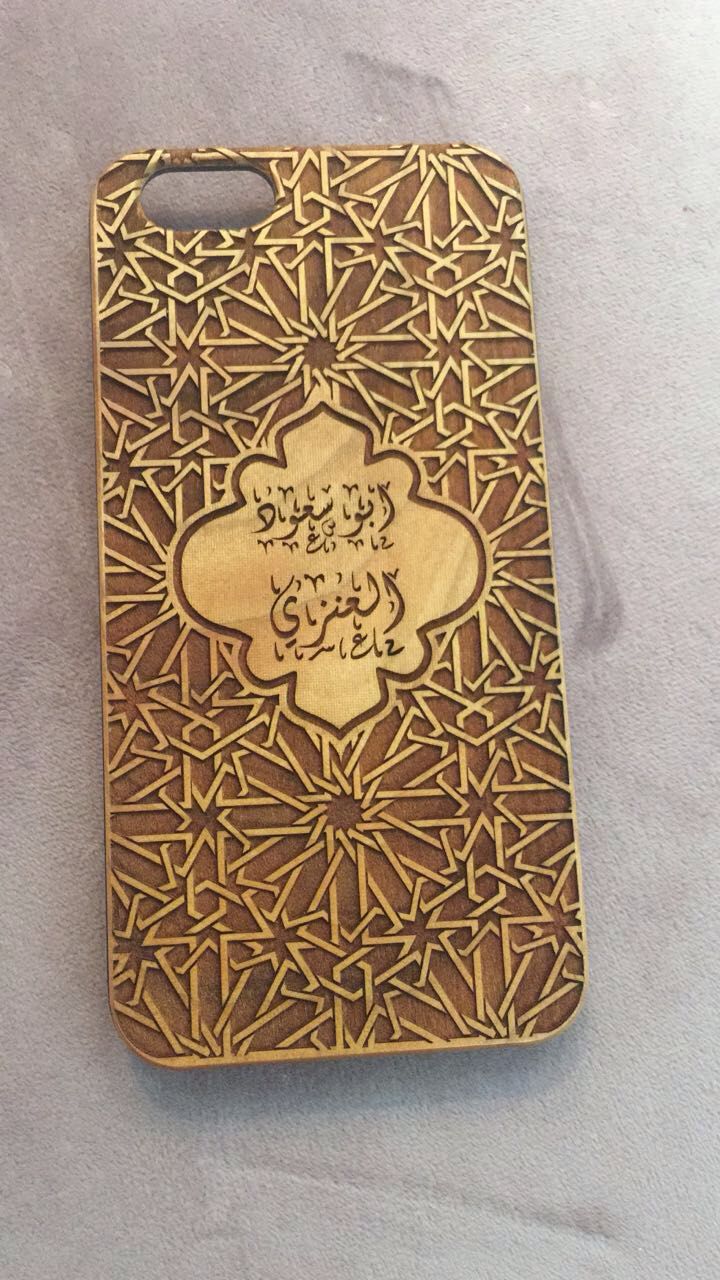 ابو سعود
العنزي